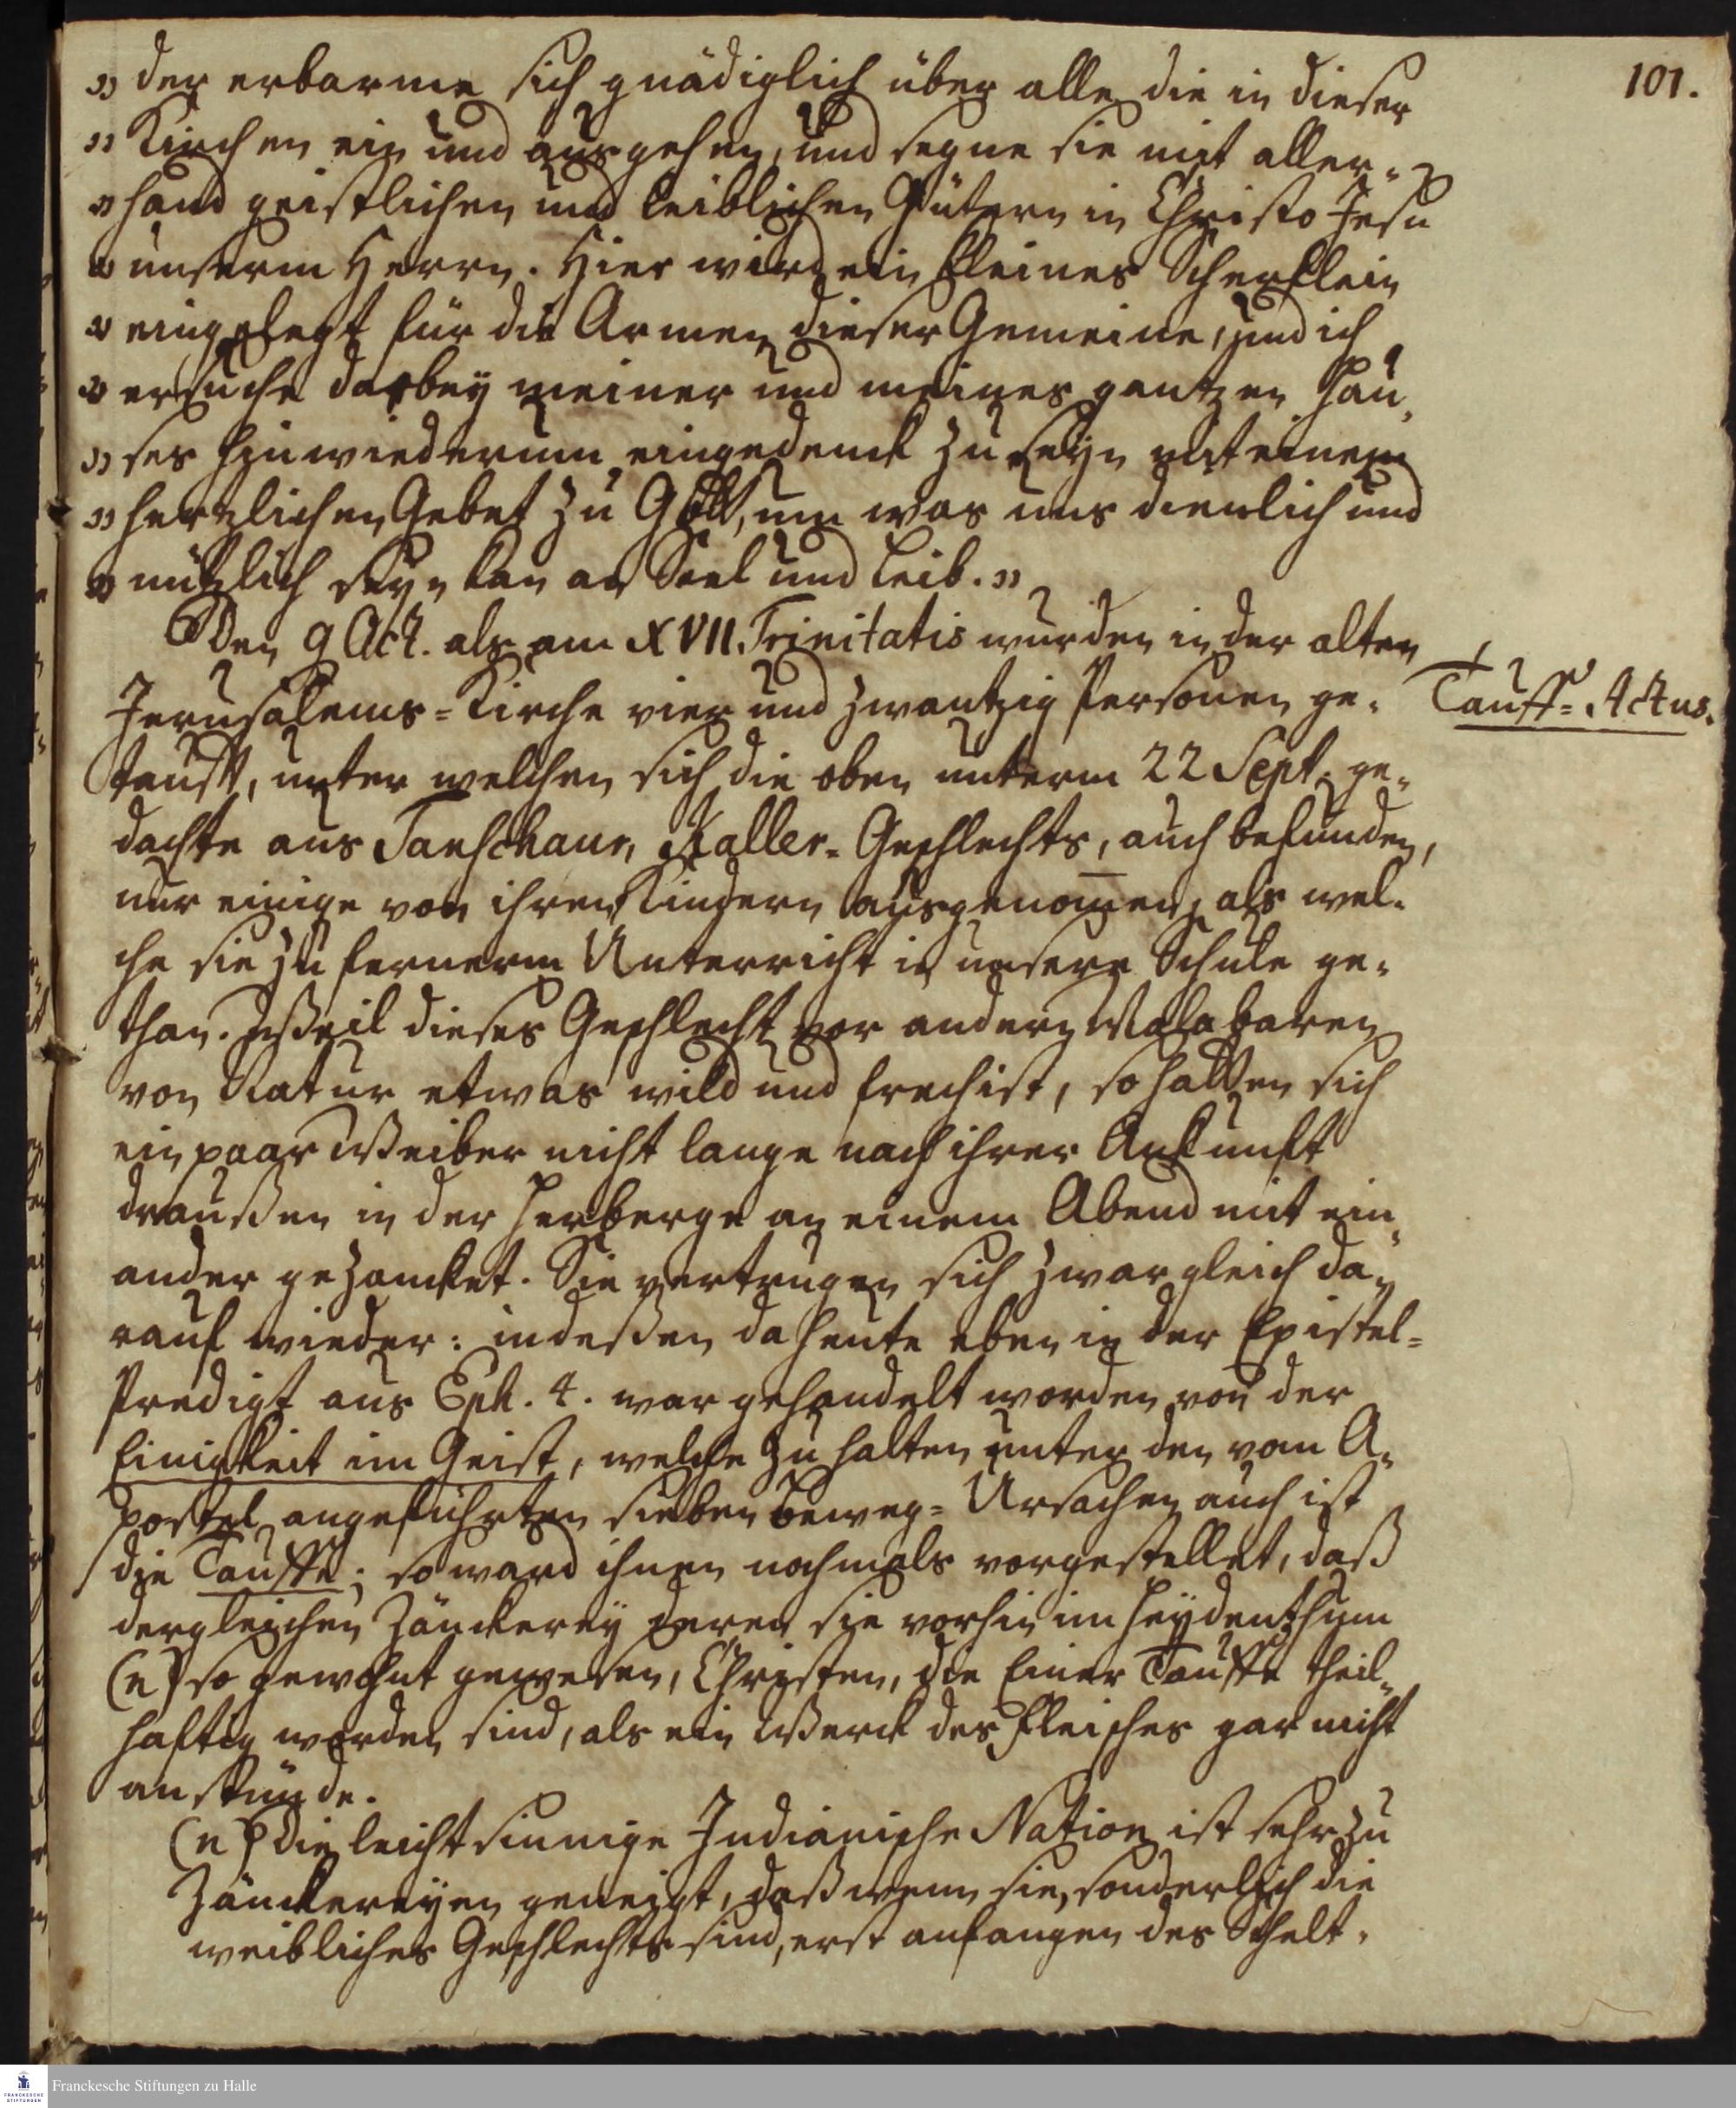 101.
„ der erbarme sich gnädiglich über alle die in dieser
„ Kirchen ein und ausgehen, und segne sie mit aller-
„ hand geistlichen und leiblichen Gütern in Christo Jesu
„ unserm Herrn. Hier wird ein kleines Scherflein
„ eingelegt für die Armen dieser Gemeine, und ich
„ ersuche darbey meiner und meines gantzen Hau-
„ ses hinwiederum eingedenck zu seyn mit einem
„ hertzlichen Gebet zu Gott, um was uns dienlich und
„ nützlich seyn kan an Seel und Leib. „
Den 9 Oct. als am XVII. Trinitatis wurden in der alten
Jerusalems-Kirche vier und zwantzig Personen ge-
Tauff-Actus.
taufft, unter welchen sich die oben unterm 22 Sept. ge-
dachte aus Tanschaur, Kaller-Geschlechts, auch befunden,
nur einige von ihren Kindern ausgenom̄en, als wel-
che sie zu fernerm Unterricht in unsere Schule ge-
than. Weil dieses Geschlecht vor andern Malabaren
von Natur etwas wild und frech ist, so hatten sich
ein paar Weiber nicht lange nach ihrer Ankunft
draußen in der Herberge an einem Abend mit ein-
ander gezancket. Sie vertrugen sich zwar gleich da-
rauf wieder: indeßen da heute eben in der Epistel-
Predigt aus Eph. 4. war gehandelt worden von der
Einigkeit im Geist, welche zu halten unter den vom A-
postel angeführten sieben Beweg-Ursachen auch ist
die Tauffe; so ward ihnen nochmals vorgestellet, daß
dergleichen Zänckerey deren sie vorhin im Heydenthum
(n) so gewohnt gewesen, Christen, die Einer Tauffe theil-
haftig worden sind, als ein Werck des Fleisches gar nicht
anstünde.
(n) Die leichtsinnige Indianische Nation ist sehr zu
Zänckereyen geneigt, daß wenn sie, sonderlich die
weibliches Geschlechts sind, erst anfangen des Schelt-
Franckesche Stiftungen zu Halle
FRANCKESCHE
STIFTUNGEN